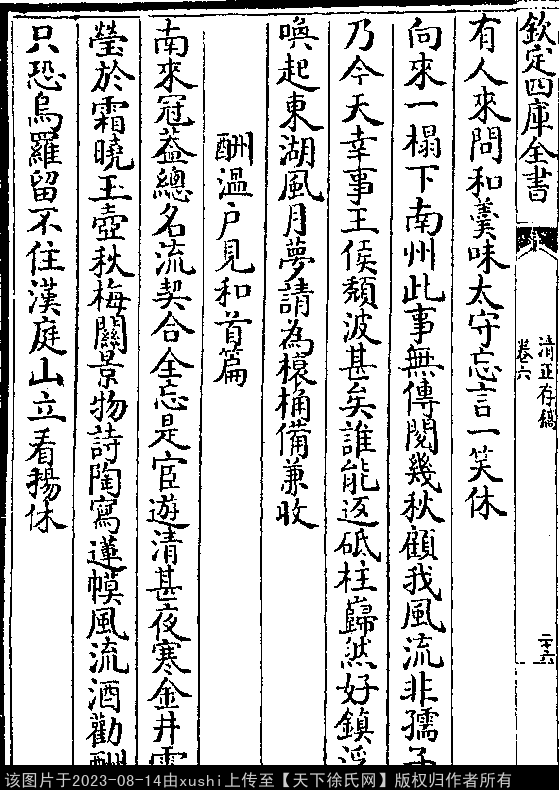 欽定四庫全書
清正存稿
卷六
二十六
有人來問和羮味太守忘言一笑休
向來一榻下南州此事無傳閲幾秋顧我風流非孺子
乃今天幸事王侯頽波甚矣誰能返砥柱巋然好鎮浮
喚起東湖風月夢請為榱桷備兼收
酬溫户見和首篇
南來冠葢總名流契合全忘是宦遊清甚夜寒金井
瑩於霜曉玉壺秋梅關景物詩陶寫蓮幙風流酒勸酬
只恐烏羅留不住漢庭山立看揚休
该图片于2023-08-14由xushi上传至【天下徐氏网】版权归作者所有